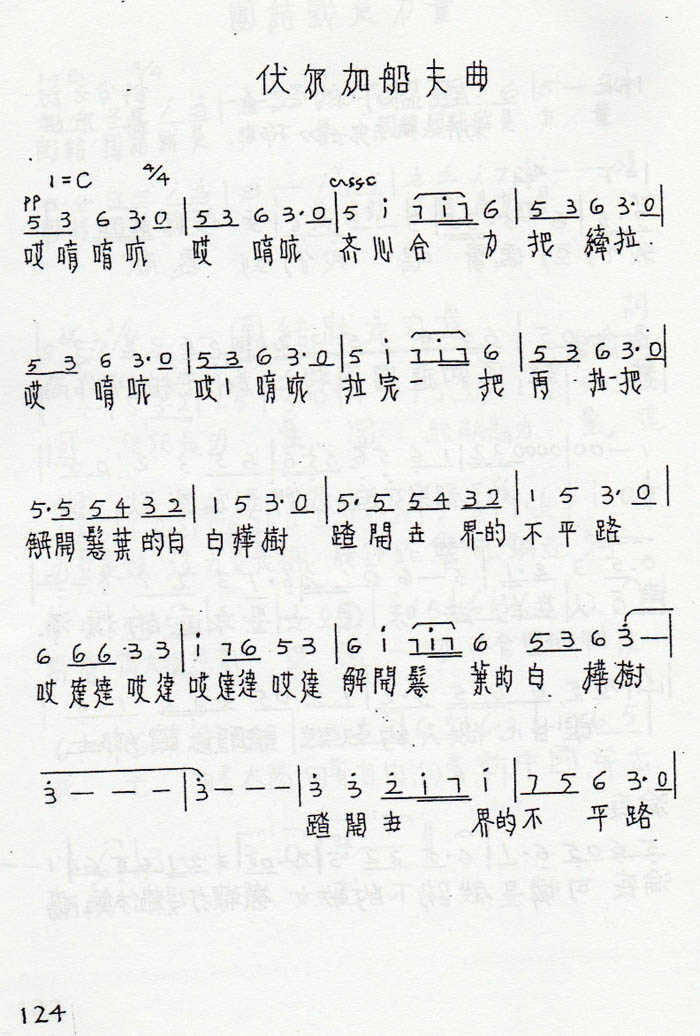 伏尔加船夫曲
1=C 4/4
pp cresc
5 3 6 3·0 | 5 3 6 3·0 | 5 i 7 i 7 6 | 5 3 6 3·0 |
哎唷唷吭 哎 唷吭 齐心合 力把 縴拉
5 3 6 3·0 | 5 3 6 3·0 | 5 i 7 i 7 6 | 5 3 6 3·0 |
哎 唷吭 哎 唷吭 拉完一 把 再 拉一把
5·5 5 4 3 2 | 1 5 3·0 | 5·5 5 4 3 2 | 1 5 3·0 |
解開鬆葉的白 白樺樹 踏開世 界的不平路
6 6 6·3 3 | i 7 6 5 3 | 6 i 7 i 7 6 5 3 6 3 — |
哎達達哎達哎達達哎達 解開鬆 葉的白 樺樹
3 — — — | 3 — — — | 3 3 2 i 7 i | 7 5 6 3·0 |
踏開世 界的不 平路
124